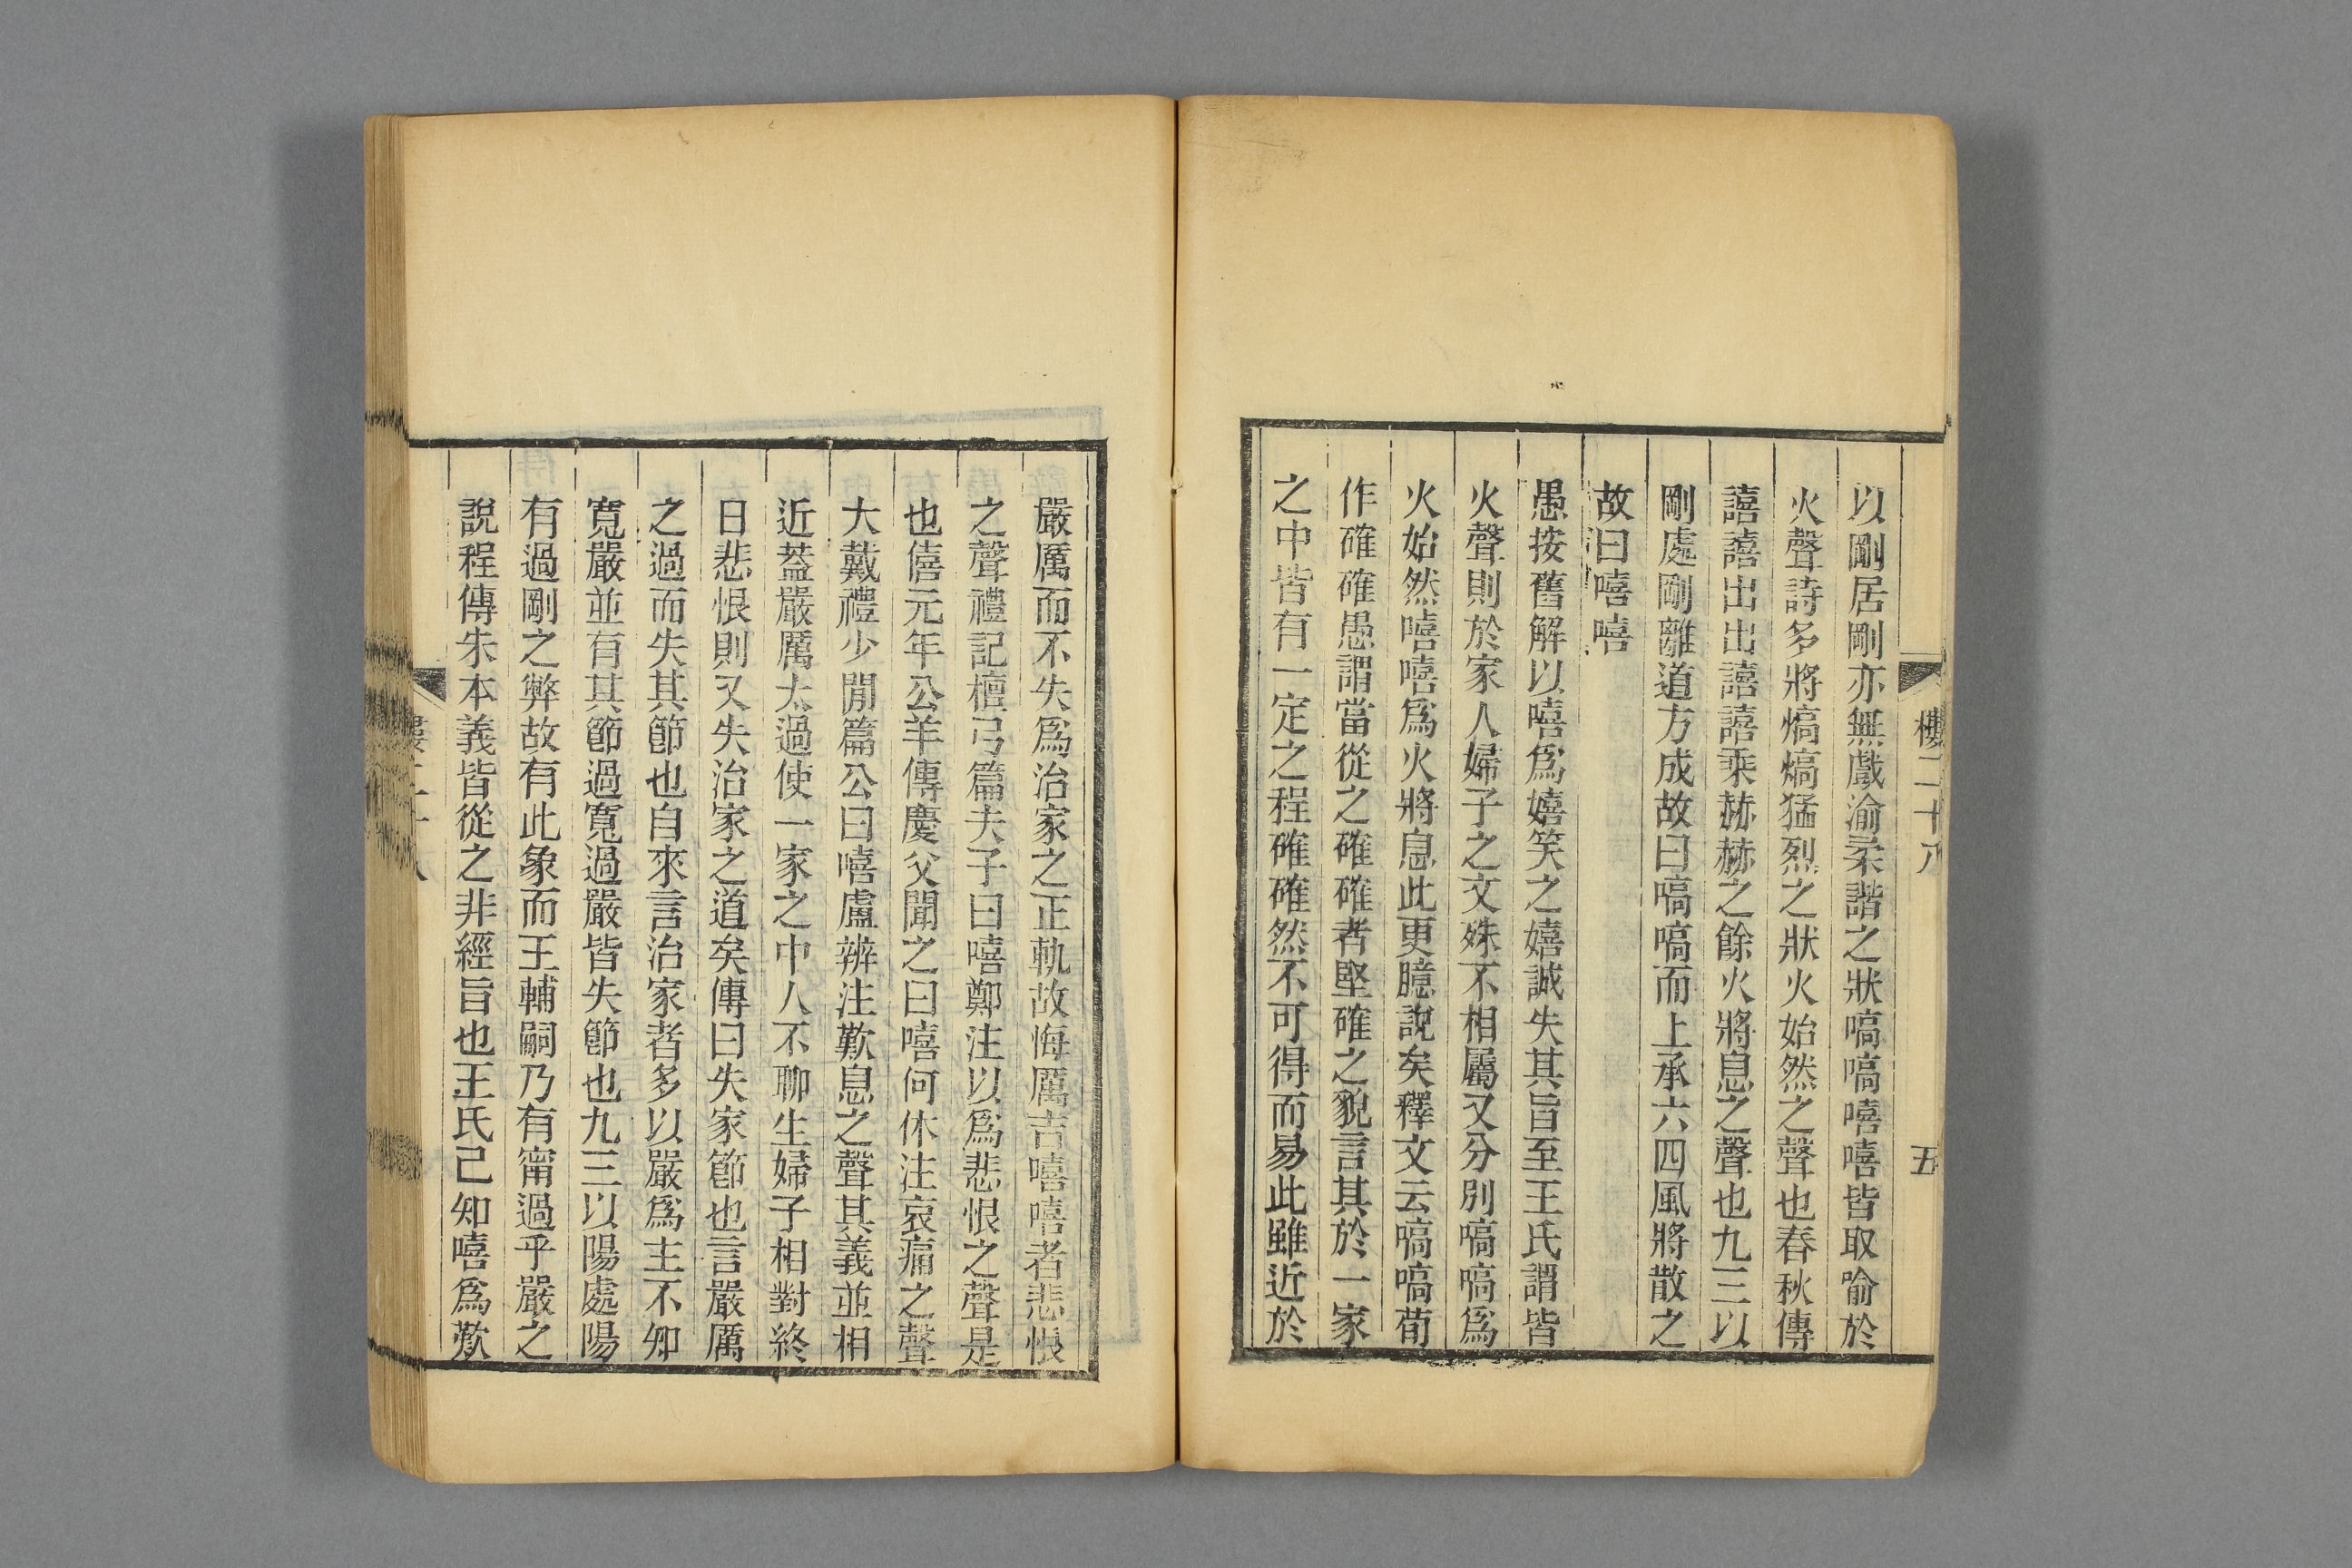 樓二十八
五
以剛居剛亦無戲渝柔諧之狀嗃嗃嘻嘻皆取喻於
火聲詩多將熇熇猛烈之狀火始然之聲也春秋傳
譆譆出出譆譆乘赫赫之餘火將息之聲也九三以
剛處剛離道方成故曰嗃嗃而上承六四風將散之
故曰嘻嘻
愚按舊解以嘻爲嬉笑之嬉誠失其旨至王氏謂皆
火聲則於家人婦子之文殊不相屬又分別嗃嗃爲
火始然嘻嘻爲火將息此更臆說矣釋文云嗃嗃荀
作確確愚謂當從之確確者堅確之貌言其於一家
之中皆有一定之程確確然不可得而易此雖近於
嚴厲而不失爲治家之正軌故悔厲吉嘻嘻者悲恨
之聲禮記檀弓篇夫子曰嘻鄭注以爲悲恨之聲是
也僖元年公羊傳慶父聞之曰嘻何休注哀痛之聲
大戴禮少閒篇公曰嘻盧辨注歎息之聲其義並相
近葢嚴厲太過使一家之中人不聊生婦子相對終
日悲恨則又失治家之道矣傳曰失家節也言嚴厲
之過而失其節也自來言治家者多以嚴爲主不知
寬嚴並有其節過寬過嚴皆失節也九三以陽處陽
有過剛之弊故有此象而王輔嗣乃有甯過乎嚴之
說程傳朱本義皆從之非經旨也王氏己知嘻爲歎
樓二十八